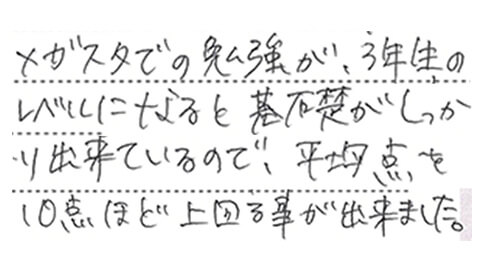 メガスタでの勉強が、3年生の
レベルになると基礎がしっか
り出来ているので、平均点を
10点ほど上回る事が出来ました。